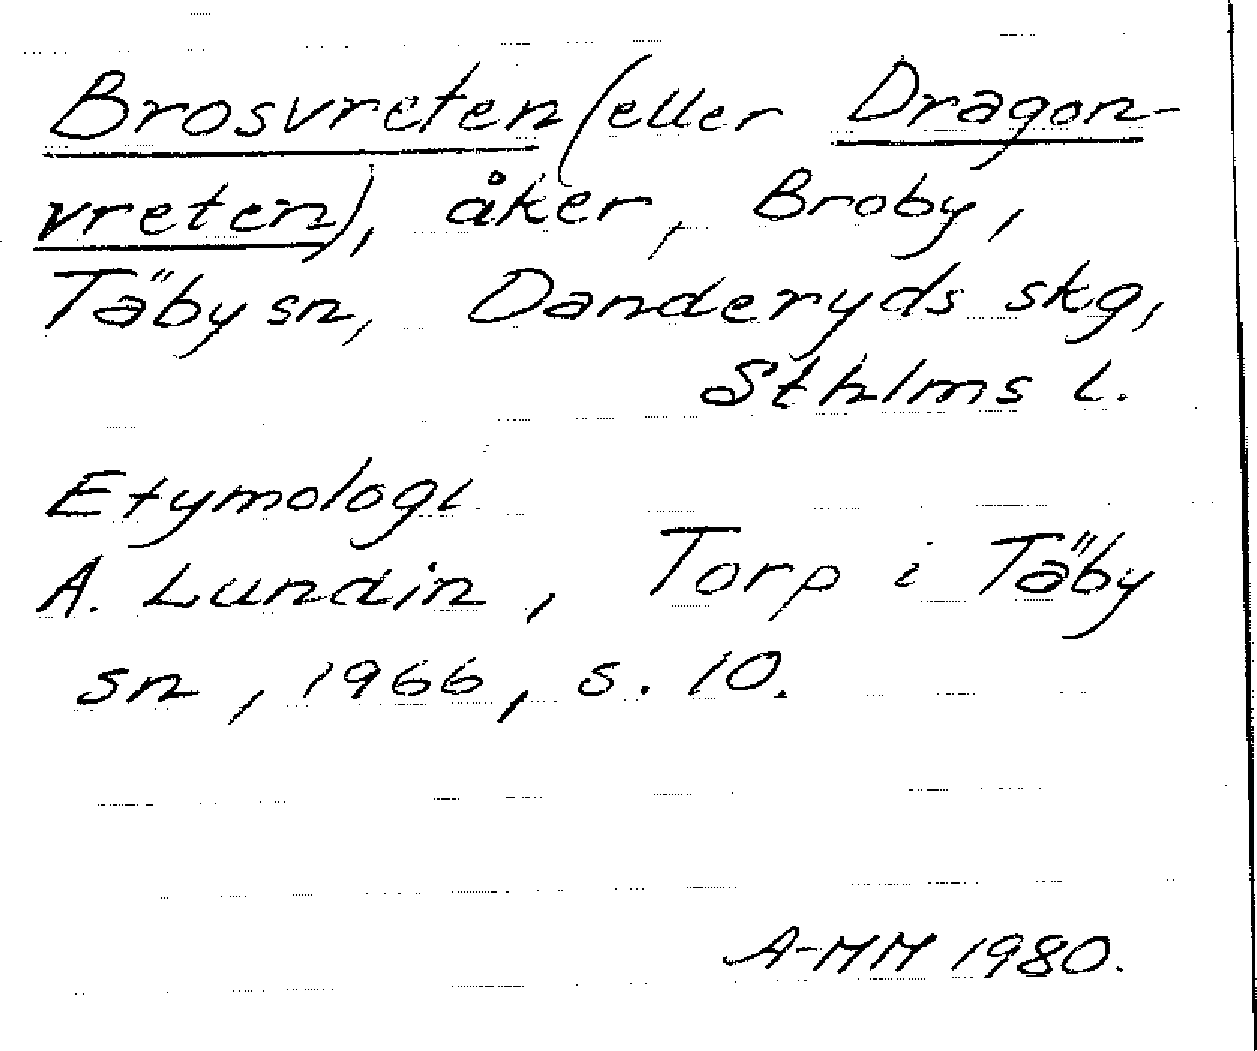 Brosvreten (eller Dragon-
vreten), åker, Broby,
Täby sn, Danderyds skg,
Sthlms l.
Etymologi
A. Lundin, Torp i Täby
sn, 1966, s. 10.
A-MM 1980.